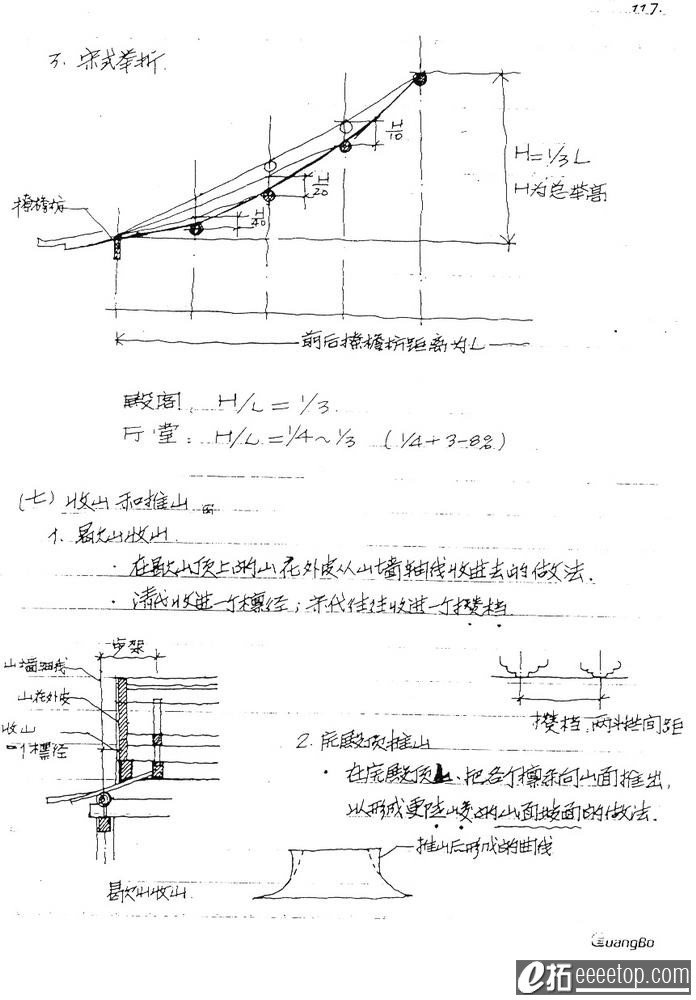 117.
3. 宋式举折.
H/10
H=1/3L
H/20
H为总举高
橑檐枋
H/40
前后橑檐枋距离为L
殿阁: H/L=1/3.
厅堂: H/L=1/4~1/3 (1/4+3-8%)
(七) 收山和推山
1. 歇山收山.
·在歇山顶上的山花外皮从山墙轴线收进去的做法.
·清代收进一个檩径;宋代往往收进一个攒档
步架
山墙轴线
山花外皮
收山
一个檩径
攒档、两斗栱间距
2. 庑殿顶推山
·在庑殿顶上、把各个檩条向山面推出,
以形成更陡峻的山面坡面的做法.
推山后形成的曲线
歇山收山.
GuangBo
e拓 eeeetop.com